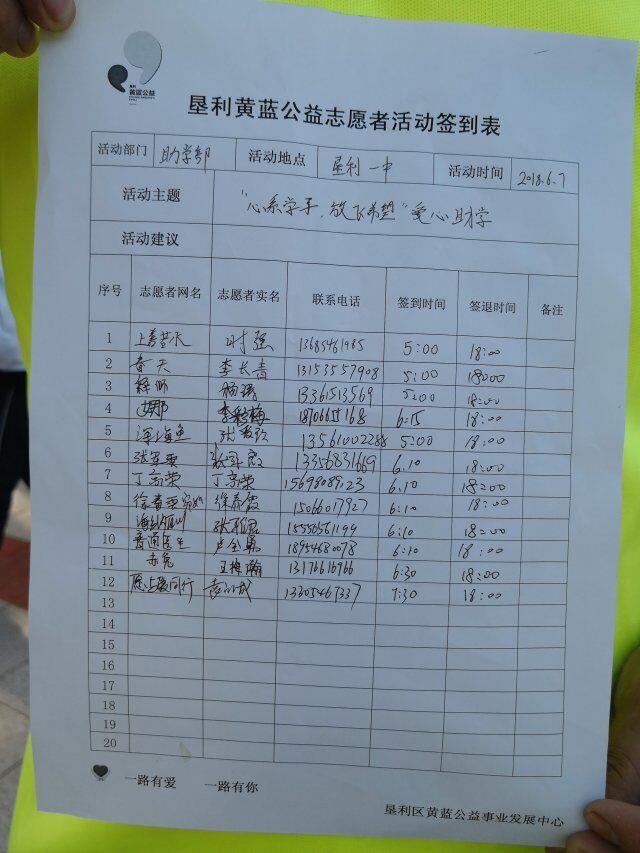 黄蓝公益
垦利黄蓝公益志愿者活动签到表
活动部门 助学部 活动地点 垦利一中 活动时间 2018.6.7
活动主题 "心系学子,放飞希望"爱心助学
活动建议
序号 志愿者网名 志愿者实名 联系电话 签到时间 签退时间 备注
1 上善若水 时强 13685461985 5:00 18:00
2 春天 李长青 13153557908 5:00 18:00
3 杨 13361513569 5:00 18:00
4 李 6:15 18:00
5 张 13561002288 5:00 18:00
6 13356831669 6:10 18:00
7 丁高荣 丁高荣 15698089123 6:10 18:00
8 徐春霞 15066017927 6:10 18:00
9 张 15556561199 6:10 18:00
10 普通医生 18954680078 6:10 18:00
11 赤兔 王 13176616966 6:30 18:00
12 同行 13305467337 7:30 18:00
13
14
15
16
17
18
19
20
一路有爱 一路有你
垦利区黄蓝公益事业发展中心